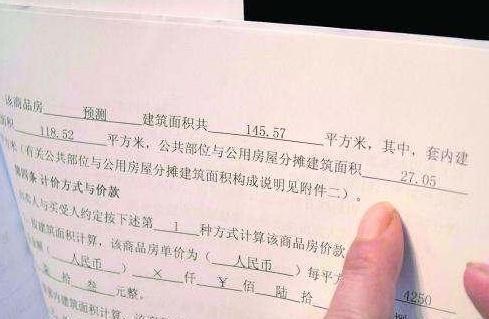 该商品房 预测 建筑面积共 145.57 平方米,其中,套内建
面积 118.52 平方米,公共部位与公用房屋分摊建筑面积 27.05
方米(有关公共部位与公用房屋分摊建筑面积构成说明见附件二)。
第四条 计价方式与价款
卖人与买受人约定按下述第 1 种方式计算该商品房价款
按建筑面积计算,该商品房单价为( 人民币 )每平方 4250
( 人民币 ) × 仟 ¥ 佰 陆 拾
柒 拾 叁 元整。
建筑面积计算,